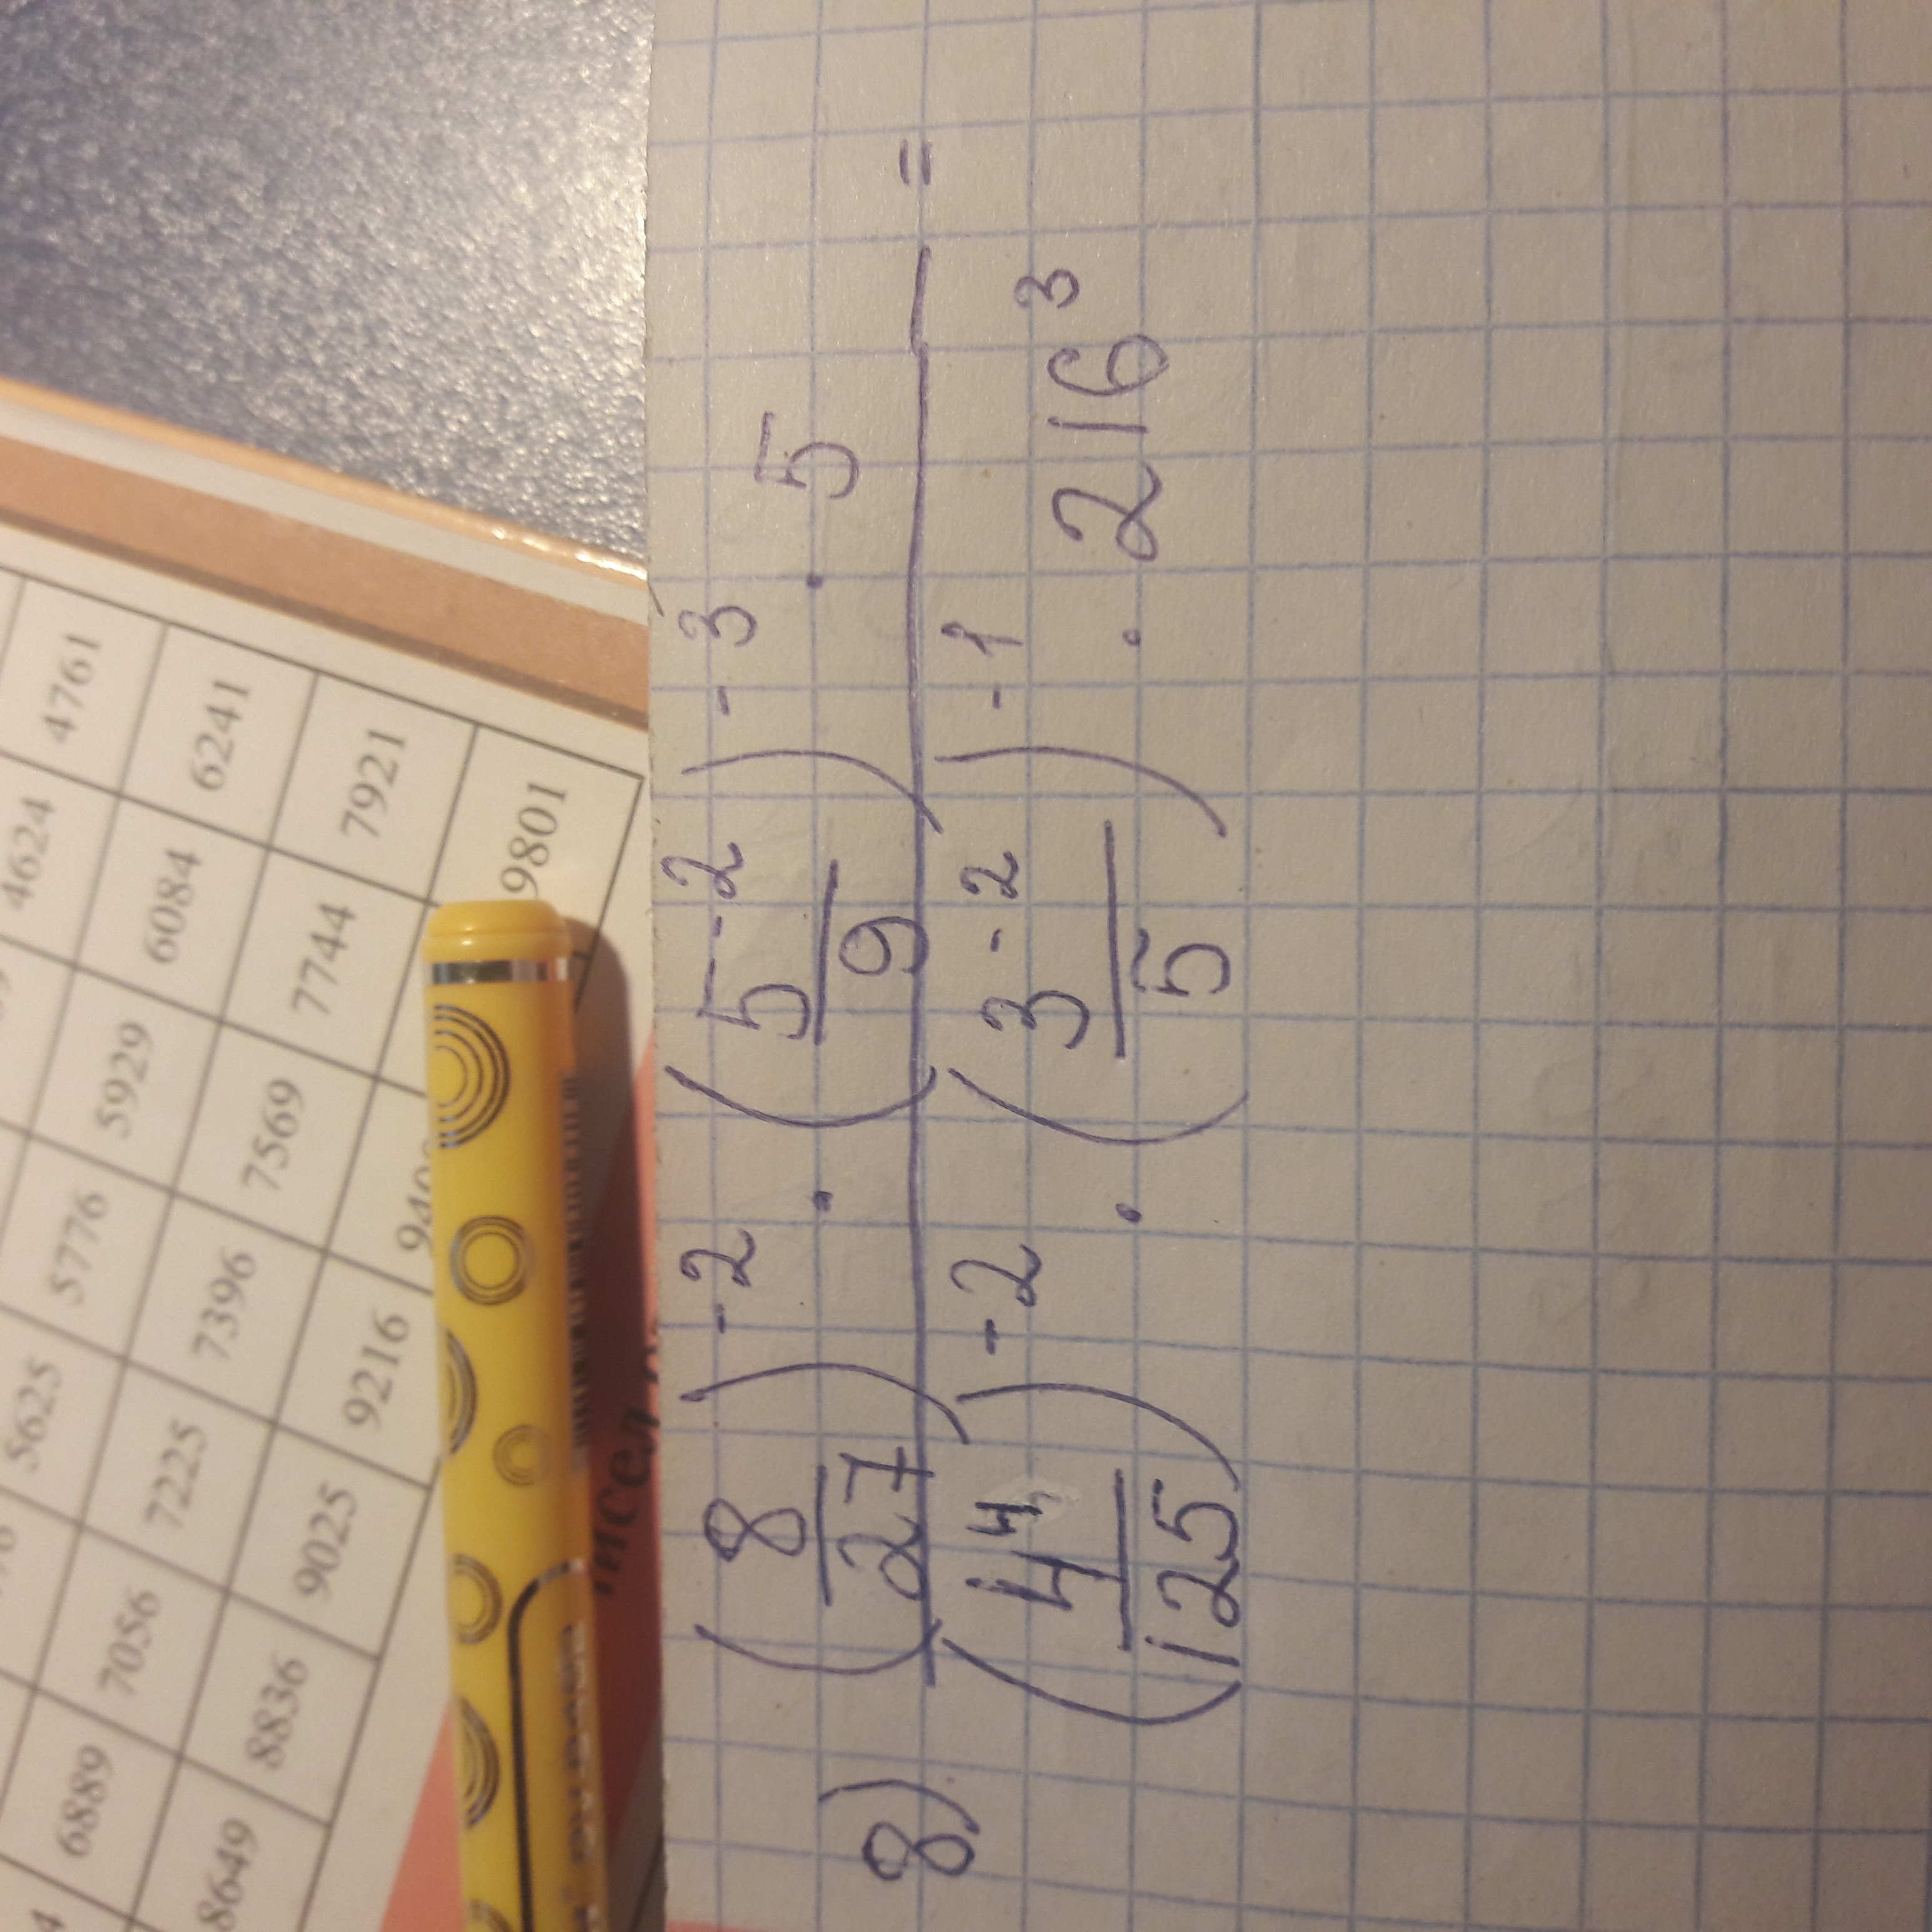 8) ((8/27)^-2 · (5^-2/9)^-3 · 5) / ((4^4/125)^-2 · (3^-2/5)^-1 · 216^3) =
4624 4761
5625 5776 5929 6084 6241
6889 7056 7225 7396 7569 7744 7921
8649 8836 9025 9216 9801